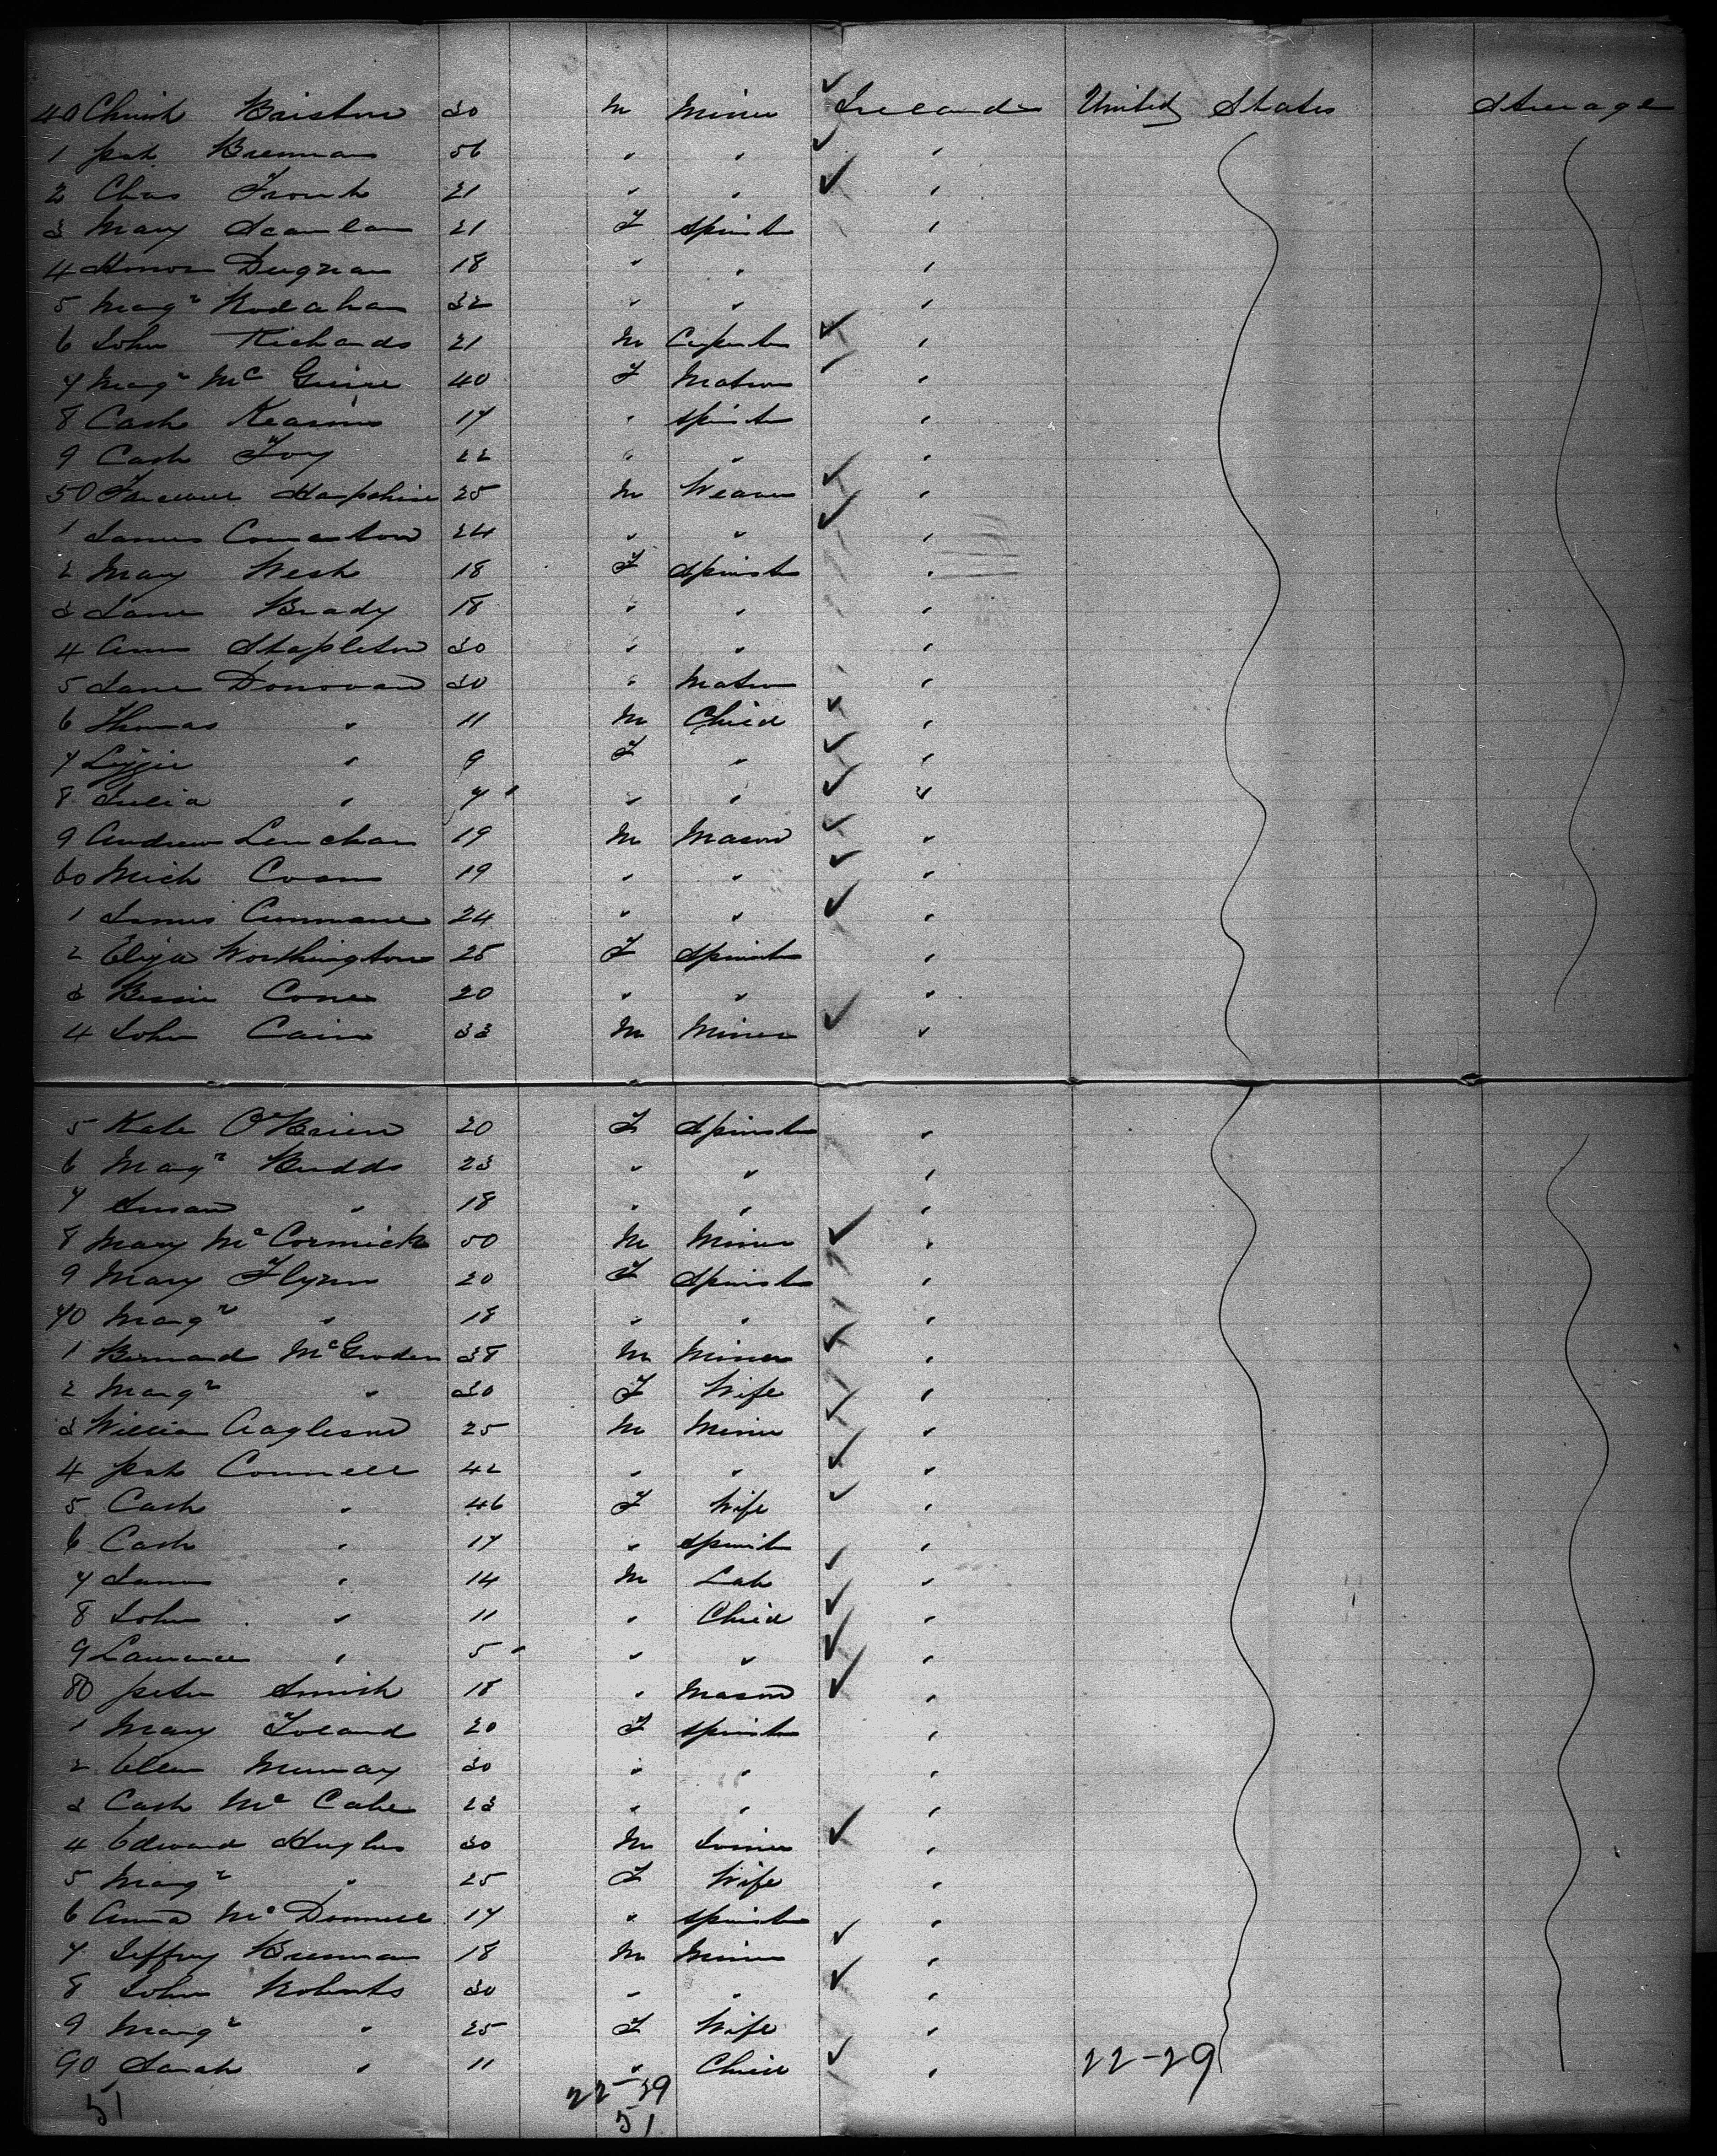 40 Christ Bristow 30 M Miner Ireland United States Steerage
1 Pat Brennan 56 " " "
2 Chas 21 " " "
3 Mary Scanlan 21 F Spinst "
4 Honor Duignan 18 " " "
5 Margt 32 " " "
6 John Richards 21 M Carpenter "
7 Margt McGuire 40 F Matron "
8 Cath Kearins 17 " Spinst "
9 Cath Foy 22 " " "
50 25 M Weaver "
1 James 24 " " "
2 Mary West 18 F Spinst "
3 Jane Brady 18 " " "
4 Ann Stapleton 30 " " "
5 Jane Donovan 30 " Matron "
6 Thomas " 11 M Child "
7 Lizzie " 9 F " "
8 Julia " 7 " " "
9 Andrew Lenehan 19 M Mason "
60 Mich Evans 19 " " "
1 James Cunnane 24 " " "
2 Eliza Worthington 25 F Spinst "
3 Bessie 20 " " "
4 John Cain 33 M Miner "
5 Kate O'Brien 20 F Spinst "
6 Margt Budds 23 " " "
7 Susan " 18 " " "
8 Mary McCormick 50 M Miner "
9 Mary Flynn 20 F Spinst "
70 Margt " 18 " " "
1 Bernard McGroden 38 M Miner "
2 Margt " 30 F Wife "
3 William 25 M Miner "
4 Pat Connell 42 " " "
5 Cath " 46 F Wife "
6 Cath " 17 " Spinst "
7 James " 14 M Lab "
8 John " 11 " Child "
9 Laurence " 5 " " "
80 Peter Smith 18 " Mason "
1 Mary Toland 20 F Spinst "
2 Ellen Murray 30 " " "
3 Cath McCabe 23 " " "
4 Edward Hughes 30 M Joiner "
5 Margt " 25 F Wife "
6 Anna McDonnell 17 " Spinst "
7 Jeffrey Brennan 18 M Miner "
8 John Roberts 30 " " "
9 Margt " 25 F Wife "
90 Sarah " 11 " Child " 22-29
51 22-29
51